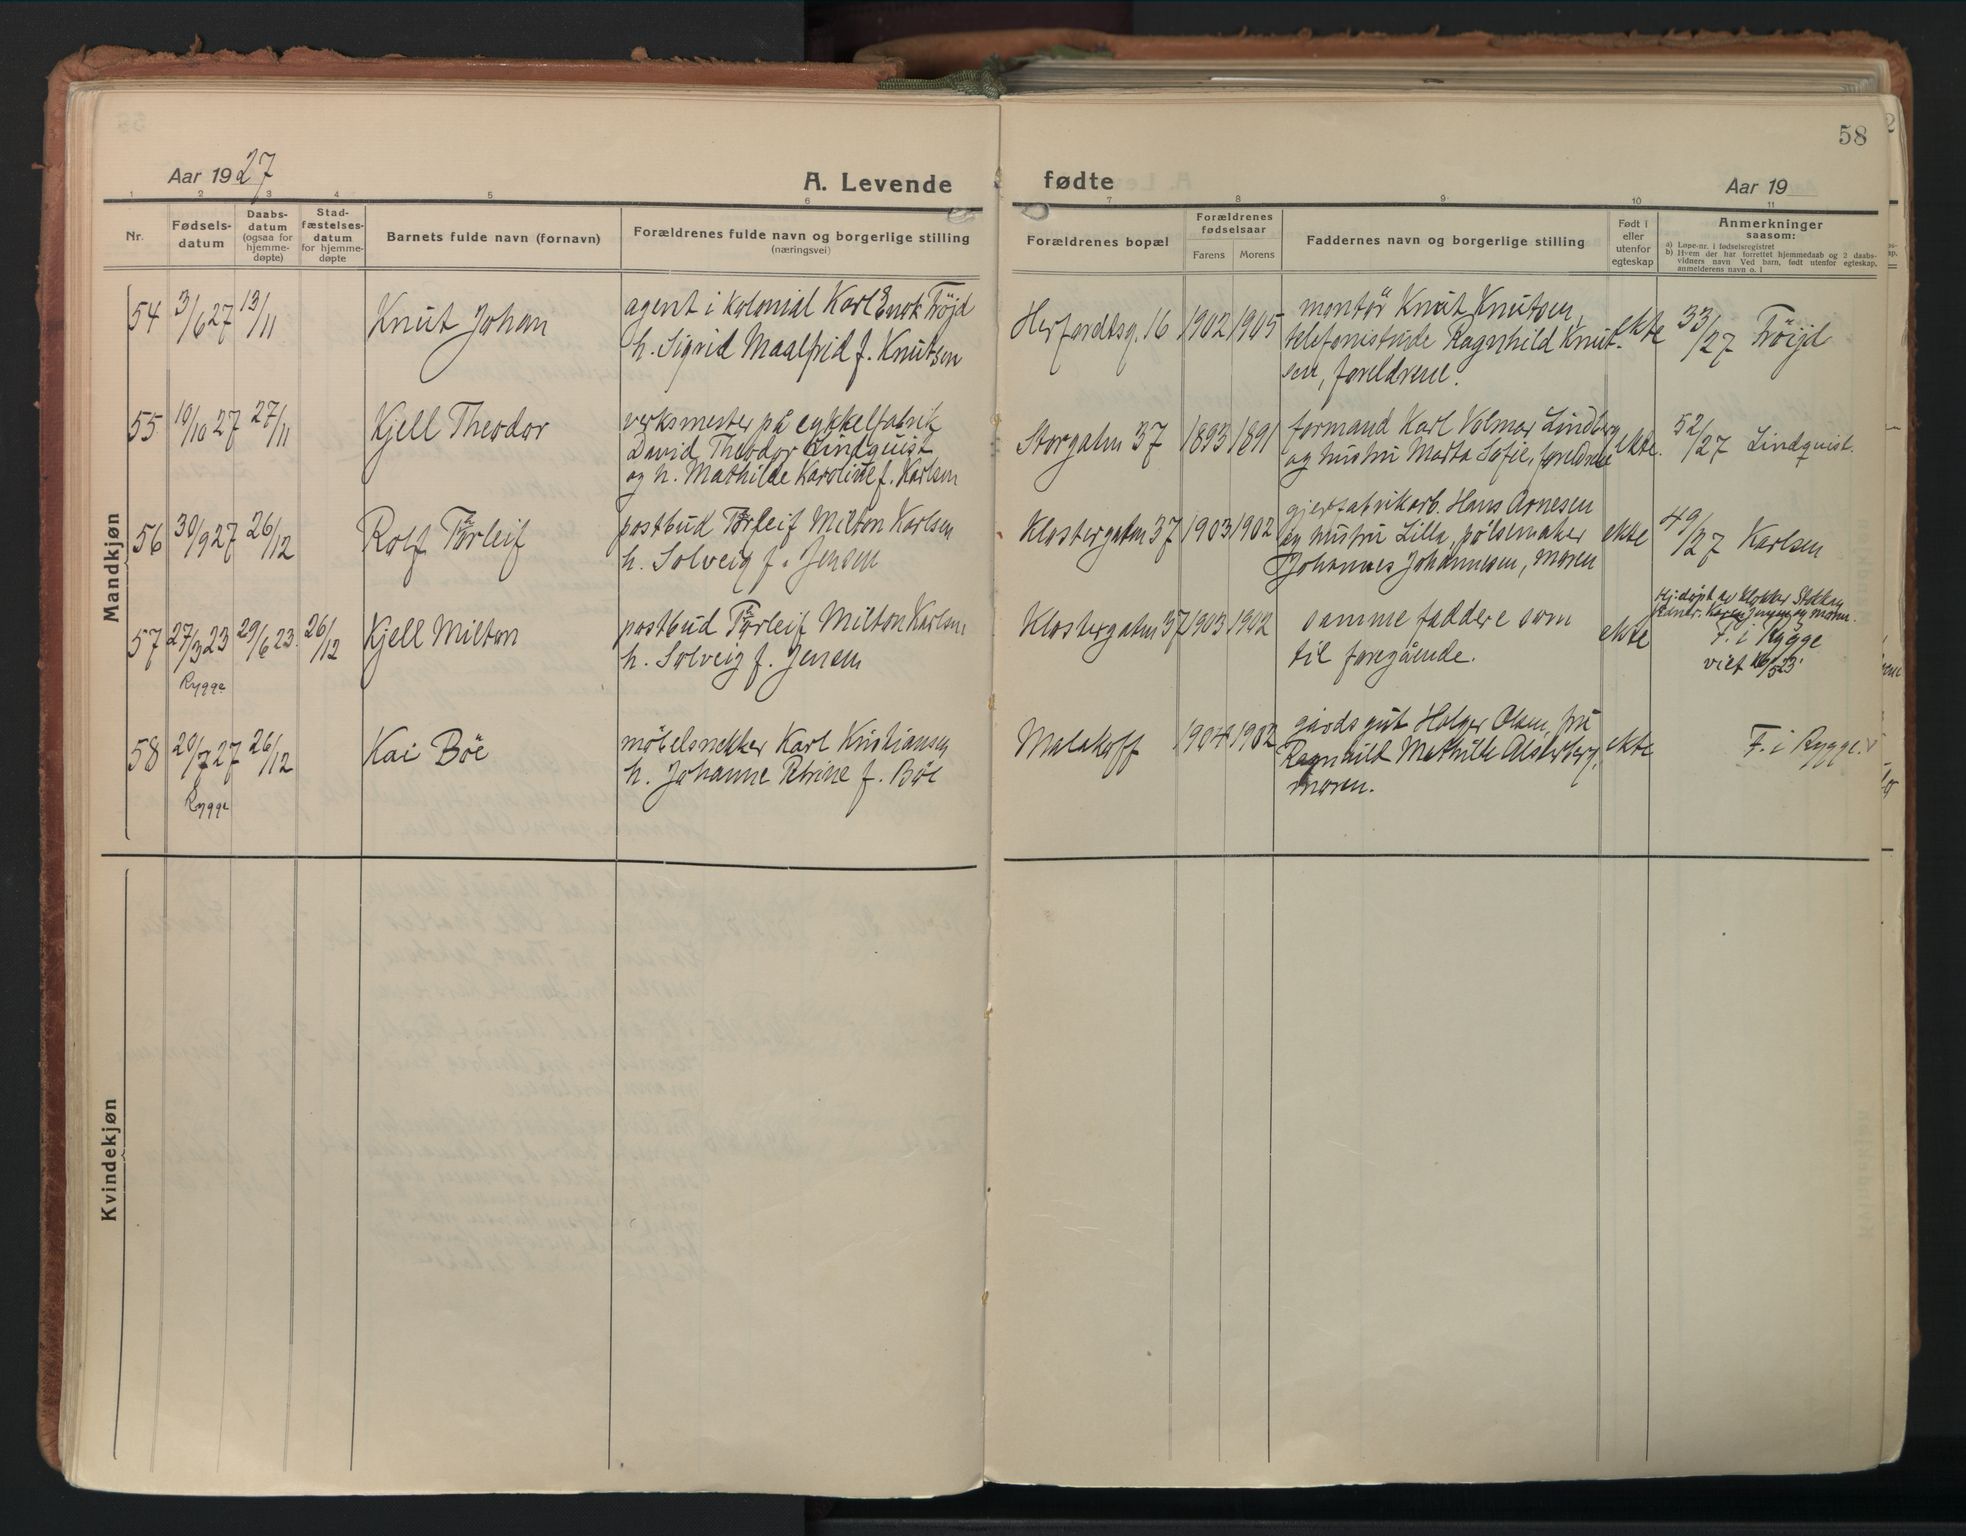 58
Aar 1927
A. Levende fødte
Aar 19
1 2 3 4 5 6 7 8 9 10 11
Nr.
Fødsels-
datum
Daabs-
datum
(ogsaa for
hjemme-
døpte)
Stad-
fæstelses-
datum
for hjemme-
døpte
Barnets fulde navn (fornavn)
Forældrenes fulde navn og borgerlige stilling
(næringsvei)
Forældrenes bopæl
Forældrenes
fødselsaar
Farens Morens
Faddernes navn og borgerlige stilling
Født i
eller
utenfor
egteskap
Anmerkninger
saasom:
a) Løpe-nr. i fødselsregistret
b) Hvem der har forrettet hjemmedaab og 2 daabs-
vidners navn Ved barn, født utenfor egteskap,
anmelderens navn o. l
Mandkjøn
54 3/6 27 13/11
Knut Johan
agent i kolonial Karl Enok Tröjd
h. Sigrid Maalfrid f. Knutsen
Herfordtsg. 16 1902 1905
montör Knut Knutsen,
telefonistinde Ragnhild Knut-
sen, foreldrene.
ekte
33/27 Tröijd
55 19/10 27 27/11
Kjell Theodor
verksmester på cykkelfabrik
David Theodor Lindquist
og h. Mathilde Karoline f. Karlsen
Storgaten 37 1893 1891
formand Karl Volmar Lindberg
og hustru Marta Sofie, foreldrene
ekte.
52/27 Lindquist.
56 30/9 27 26/12
Rolf Torleif
postbud Torleif Milton Karlsen
h. Solveig f. Jensen
Klostergaten 37 1903 1902
gjerfabrikarb. Hans Arnesen
og hustru Lilla, pølsemaker
Johannes Johannesen, moren
ekte
49/27 Karlsen
57 27/3 23 29/6 23. 26/12
Rygge
Kjell Milton
postbud Torleif Milton Karlsen
h. Solveig f. Jensen
Klostergaten 37 1903 1902
samme faddere som
til foregående.
ekte
Hj.døpt av klokker Stokken
Karen Jensen og moren.
F. i Rygge
viet 16/5 23.
58 20/7 27 26/12
Rygge
Kai Böe
møbelsnekker Karl Kristiansen
h. Johanne Petrine f. Böe
Malakoff 1904 1902
gårdsgut Holger Olsen, fru
Ragnhild Mathilde
moren.
ekte
F. i Rygge.
Kvindekjøn